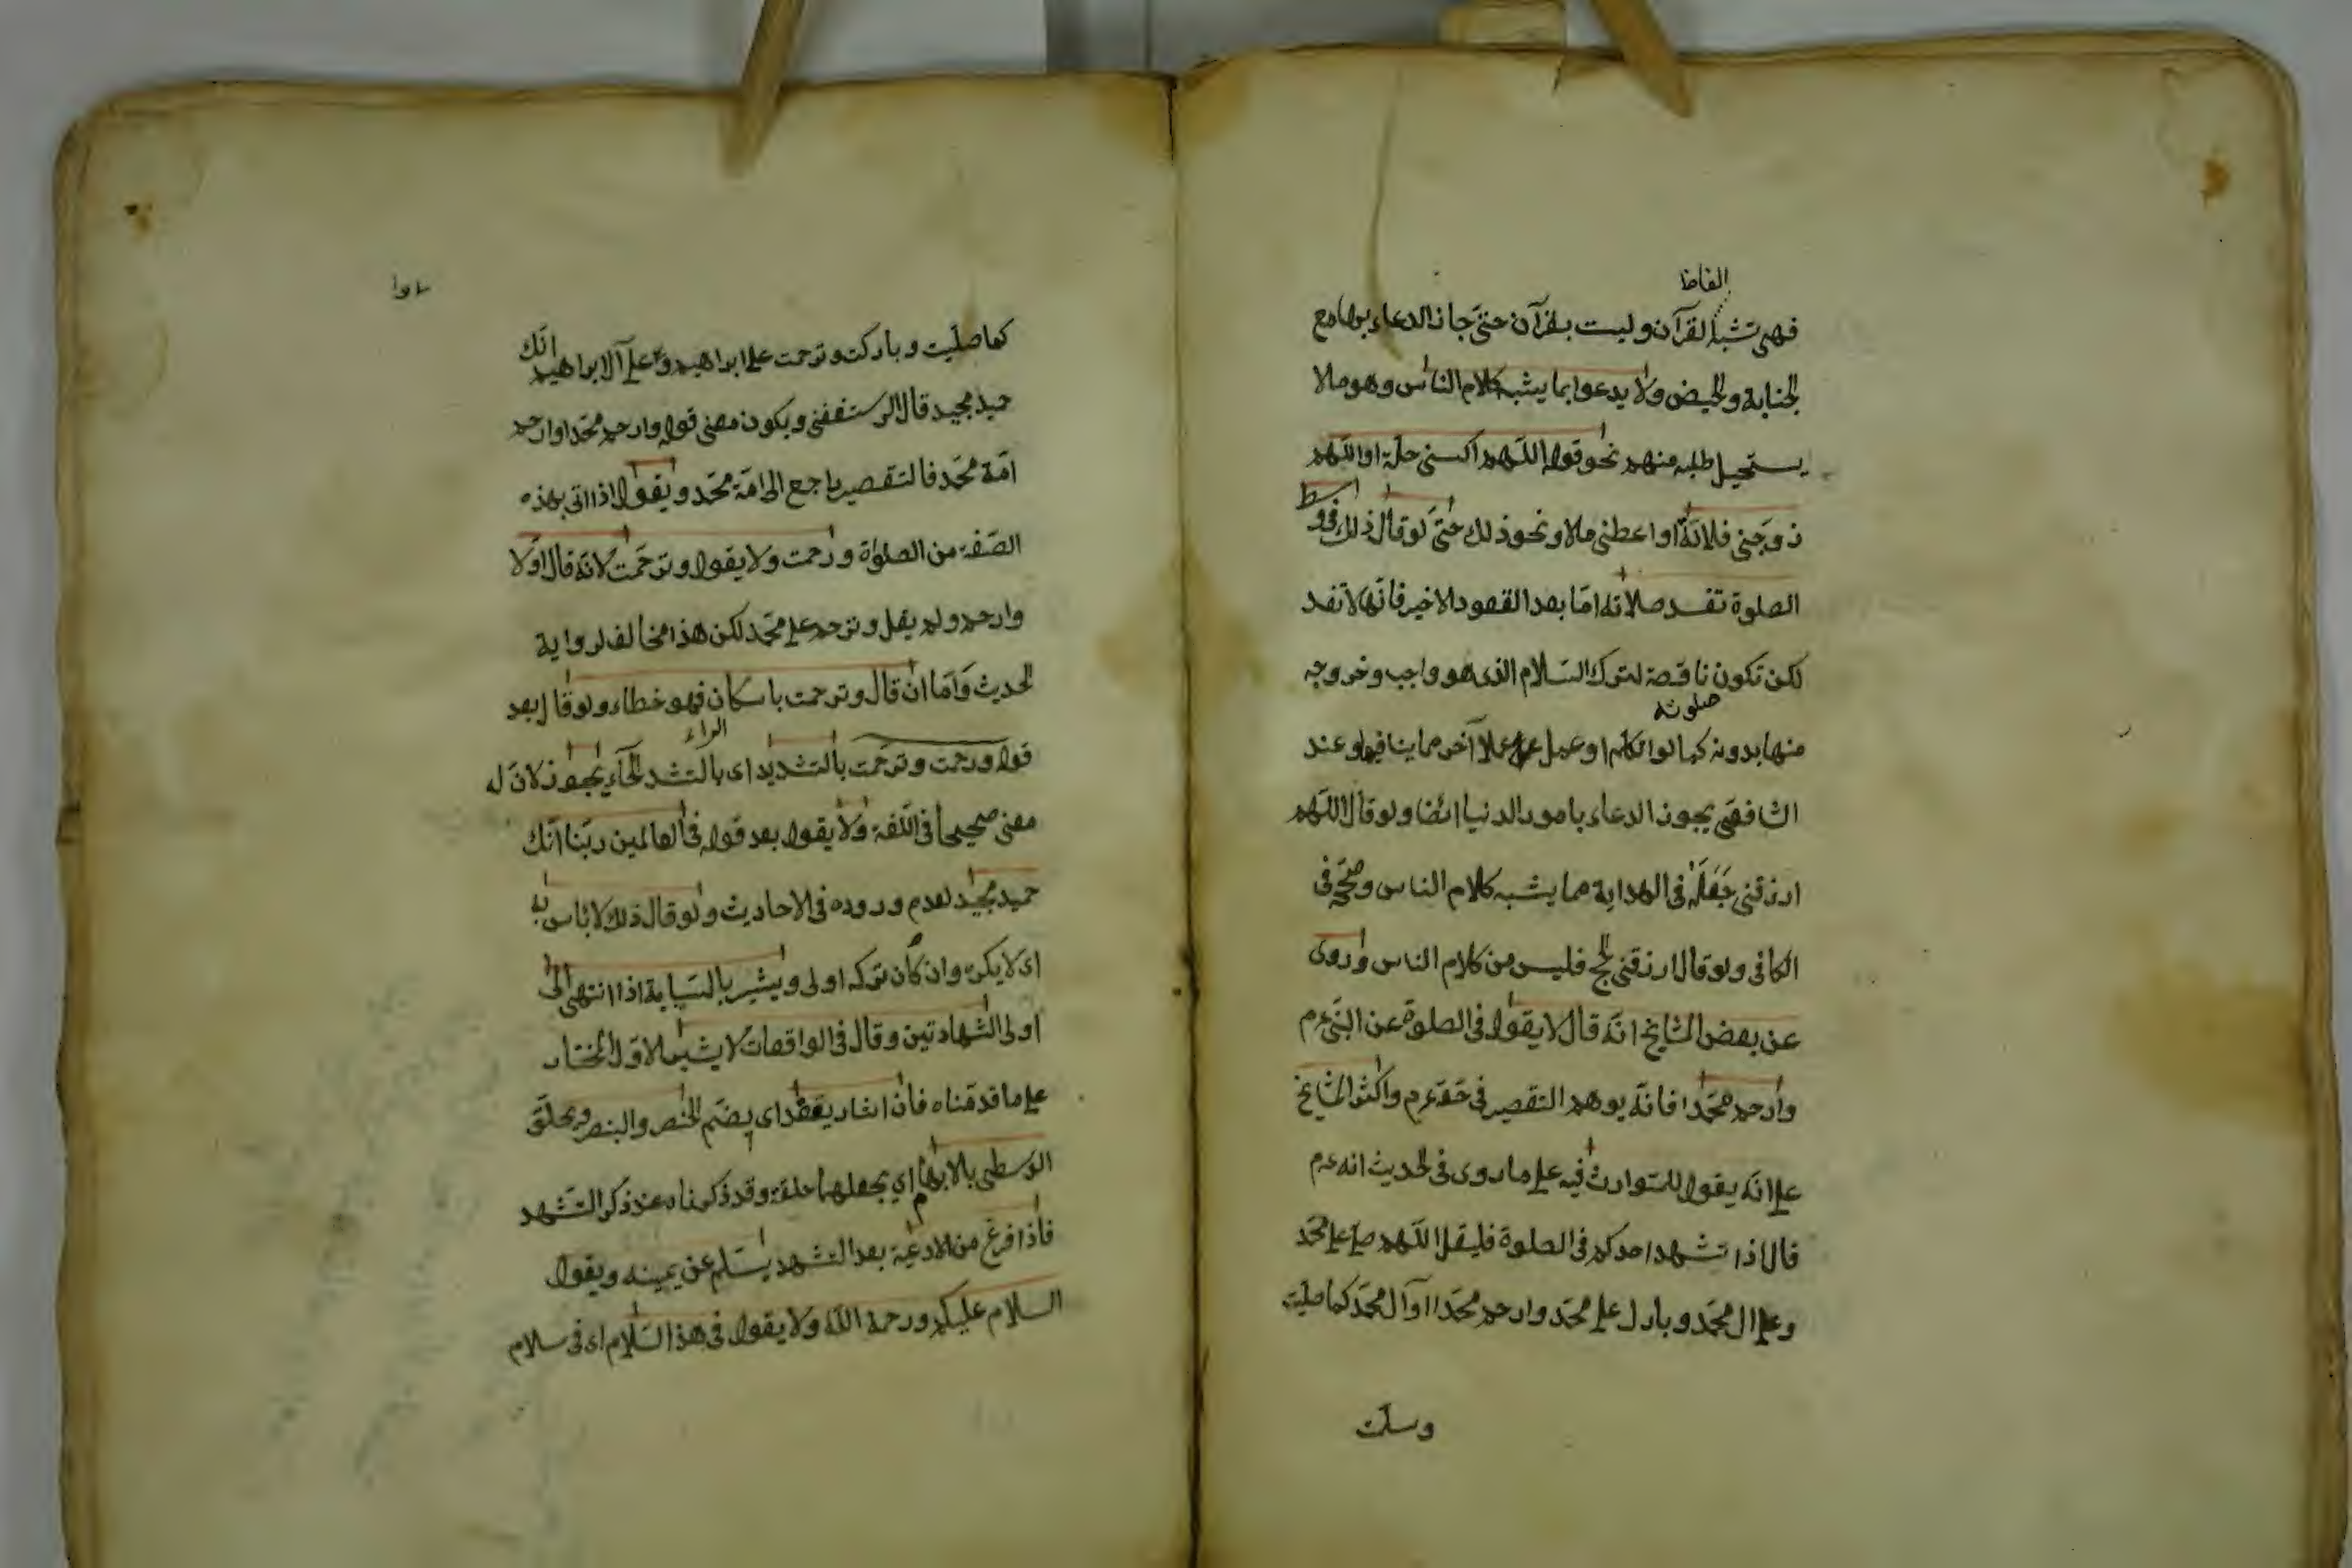 الفاظ
فهى تشبه القرآن وليست بقرآن حتى جاز الدعاء بها مع
الجنابة والحيض ولا يدعوا بما يشبه كلام الناس وهو مالا
يستحيل طلبه منهم نحو قوله اللهم اكسنى حلة او اللهم
زوجنى فلانة او اعطنى مالا ونحو ذلك حتى لو قال ذلك فى وسط
الصلوة تفسد صلاته اما بعد القعود الاخير فانها لا تفسد
لكن تكون ناقصة لترك السلام الذى هو واجب وخروجه
صلوته
منها بدونه كما لو تكلم او عمل عملا آخر مما ينافيها وعند
الشافعى يجوز الدعاء بامور الدنيا ايضا ولو قال اللهم
ارزقنى جعله فى الهداية مما يشبه كلام الناس وصححه فى
الكافى ولو قال ارزقنى الحج فليس من كلام الناس وروى
عن بعض المشايخ انه قال لا يقول فى الصلوة عن النبى عم
وارحم محمدا فانه يوهم التقصير فى حقه عم واكثر المشايخ
على انه يقول للتوارث فيه على ما روى فى الحديث انه عم
قال اذا تشهد احدكم فى الصلوة فليقل اللهم صل على محمد
وعلى ال محمد وبارك على محمد وارحم محمدا وآل محمد كما صليت
وسلمت
كما صليت وباركت وترحمت على ابراهيم وعلى آل ابراهيم انك
حميد مجيد قال الرستغفنى ويكون معنى قوله وارحم محمدا وارحم
امة محمد فالتقصير راجع الى امة محمد ويقول اذا اتى بهذه
الصفة من الصلوة ورحمت ولا يقول وترحمت لانه قال اولا
وارحم ولم يقل وترحم على محمد لكن هذا مخالف لرواية
الحديث واما ان قال وترحمت باسكان فهو خطاء ولو قال بعد
الراء
قوله ورحمت وترحمت بالتشديد اى بالتشد الحاء يجوز لان له
معنى صحيحا فى اللغة ولا يقول بعد قوله فى العالمين ربنا انك
حميد مجيد لعدم وروده فى الاحاديث ولو قال ذلك لا باس به
اى لا يكره وان كان تركه اولى ويشير بالسبابة اذا انتهى الى
اولى الشهادتين وقال فى الواقعات لا يشير والاول المختار
على ما قدمناه فان اشار يعقد اى يضم الخنصر والبنصر ويحلق
الوسطى بالابهام اى يجعلهما حلقة وقد ذكرناه عند ذكر التشهد
فاذا فرغ من الادعية بعد التشهد يسلم عن يمينه ويقول
السلام عليكم ورحمة الله ولا يقول فى هذا السلام اى فى سلام